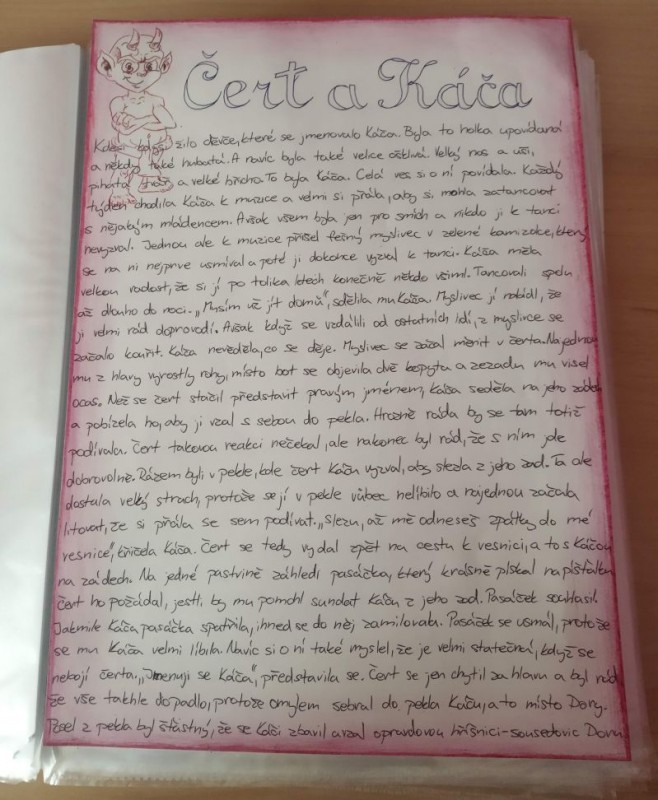 Čert a Káča
Kdesi kdysi žilo děvče, které se jmenovalo Káča. Byla to holka upovídaná
a někdy také hubatá. A navíc byla také velice ošklivá. Velký nos a uši,
pihatá tvář a velké břicho. To byla Káča. Celá ves si o ní povídala. Každý
týden chodila Káča k muzice a velmi si přála, aby si mohla zatancovat
s nějakým mládencem. Avšak všem byla jen pro smích a nikdo ji k tanci
nevyzval. Jednou ale k muzice přišel fešný myslivec v zelené kamizole, který
se na ni nejprve usmíval a poté ji dokonce vyzval k tanci. Káča měla
velkou radost, že si jí po tolika letech konečně někdo všiml. Tancovali spolu
až dlouho do noci. „Musím už jít domů", sdělila mu Káča. Myslivec jí nabídl, že
ji velmi rád doprovodí. Avšak když se vzdálili od ostatních lidí, z myslivce se
začalo kouřit. Káča nevěděla, co se děje. Myslivec se začal měnit v čerta. Najednou
mu z hlavy vyrostly rohy, místo bot se objevila dvě kopyta a zezadu mu visel
ocas. Než se čert stačil představit pravým jménem, Káča seděla na jeho zádech
a pobízela ho, aby ji vzal s sebou do pekla. Hrozně ráda by se tam totiž
podívala. Čert takovou reakci nečekal, ale nakonec byl rád, že s ním jde
dobrovolně. Rázem byli v pekle, kde čert Káču vyzval, aby slezla z jeho zad. Ta ale
dostala velký strach, protože se jí v pekle vůbec nelíbilo a najednou začala
litovat, že si přála se sem podívat. „Slezu, až mě odneseš zpátky do mé
vesnice", křičela Káča. Čert se tedy vydal zpět na cestu k vesnici, a to s Káčou
na zádech. Na jedné pastvině záhledl pasáčka, který krásně pískal na píšťalku.
Čert ho požádal, jestli by mu pomohl sundat Káču z jeho zad. Pasáček souhlasil.
Jakmile Káča pasáčka spatřila, ihned se do něj zamilovala. Pasáček se usmál, protože
se mu Káča velmi líbila. Navíc si o ní také myslel, že je velmi statečná, když se
nebojí čerta. „Jmenuji se Káča", představila se. Čert se jen chytil za hlavu a byl rád
že vše takhle dopadlo, protože omylem sebral do pekla Káču, a to místo Dory.
Posel z pekla byl šťastný, že se Káči zbavil a vzal opravdovou hříšnici - sousedovic Doru